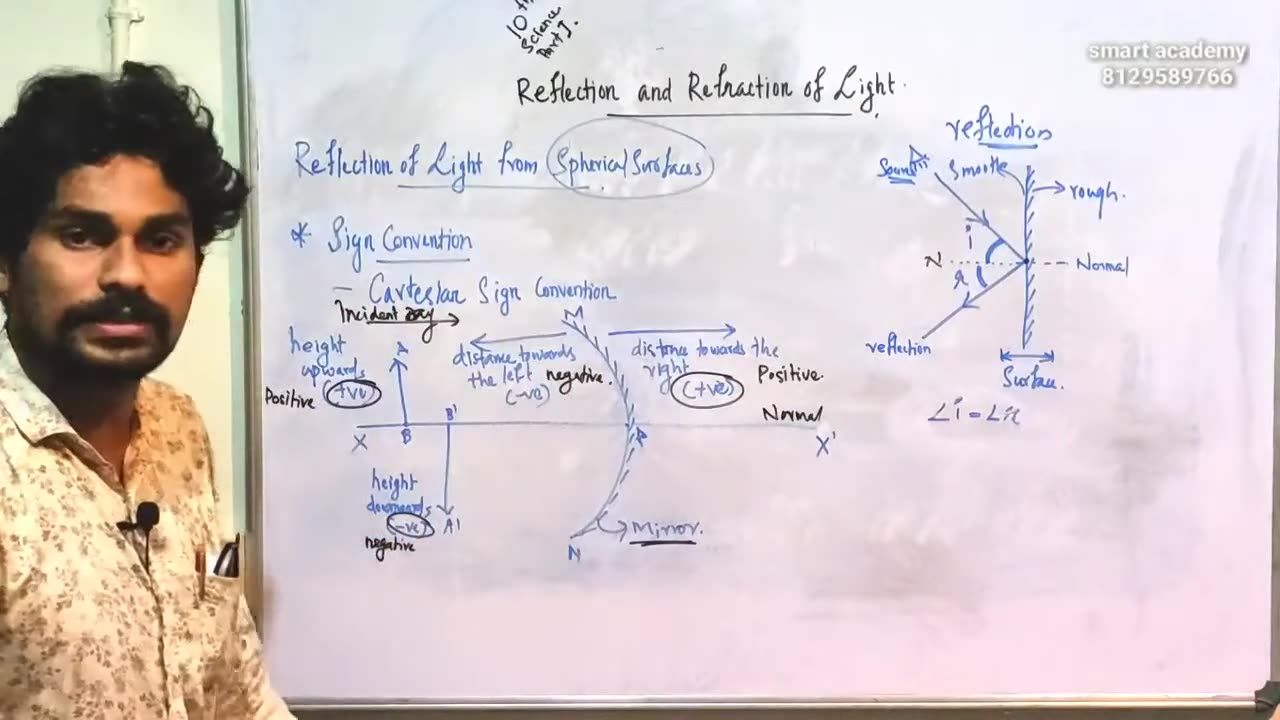 10th
Science
Part I.
smart academy
8129589766
Reflection and Refraction of Light.
Reflection of Light from Spherical Surfaces
* Sign Convention
- Cartesian Sign Convention
Incident ray
height
upwards
(+ve)
Positive
A
B
X
B'
A'
height
downwards
(-ve)
negative
distance towards
the left negative.
(-ve)
M
distance towards the
right
(+ve)
Positive.
Normal
X'
P
N
Mirror.
reflection
Smooth
rough.
i
N
Normal
r
reflection
Surface.
∠i = ∠r